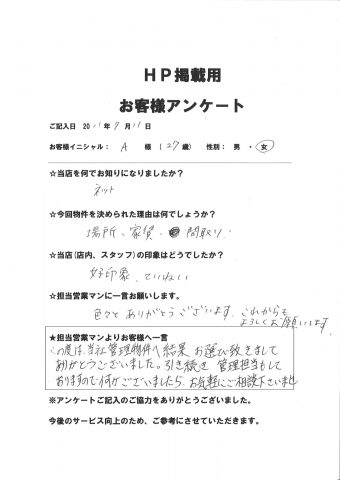 HP掲載用
お客様アンケート
ご記入日 2011年9月11日
お客様イニシャル： A 様（27歳） 性別： 男 ・ 女
☆当店を何でお知りになりましたか？
ネット
☆今回物件を決められた理由は何でしょうか？
場所、家賃、間取り
☆当店（店内、スタッフ）の印象はどうでしたか？
好印象、ていねい
☆担当営業マンに一言お願いします。
色々とありがとうございます。これからも
よろしくお願いします。
★担当営業マンよりお客様へ一言
この度は、当社管理物件へ結果、お選び致きまして
ありがとうございました。引き続き管理担当もして
おりますので何かございましたら、お気軽にご相談下さいませ
※アンケートご記入のご協力をありがとうございました。
今後のサービス向上のため、ご参考にさせていただきます。